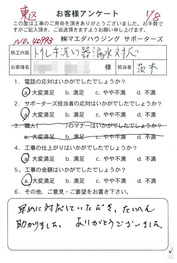 東区
1/8
お客様アンケート
この度は工事のご用命を頂きありがとうございました。お手数で
すがご記入頂き、ご返送頂きますようお願い申し上げます。
NO.40993
㈱マエダハウジング サポーターズ
施工内容
トイレ手洗い器:漏水対応
お名前
様
担当者
茨木
1. 電話の応対はいかがでしたでしょうか?
a. 大変満足 b. 満足 c. やや不満 d. 不満
2. サポーターズ担当者の応対はいかがでしたでしょうか?
a. 大変満足 b. 満足 c. やや不満 d. 不満
のマナーはいかがでしたでしょうか?
a. 大変満足 b. 満足 c. やや不満 d. 不満
4. 工事の
はいかがでしたでしょうか?
a. 大変満足 b. 満足 c. やや不満 d. 不満
5. 工事の
はいかがでしたでしょうか?
a. 大変満足 b. 満足 c. やや不満 d. 不満
6. その他、ご意見・ご要望をお書き下さい。
早めに対応していただき、たいへん
助かりました。ありがとうございました。